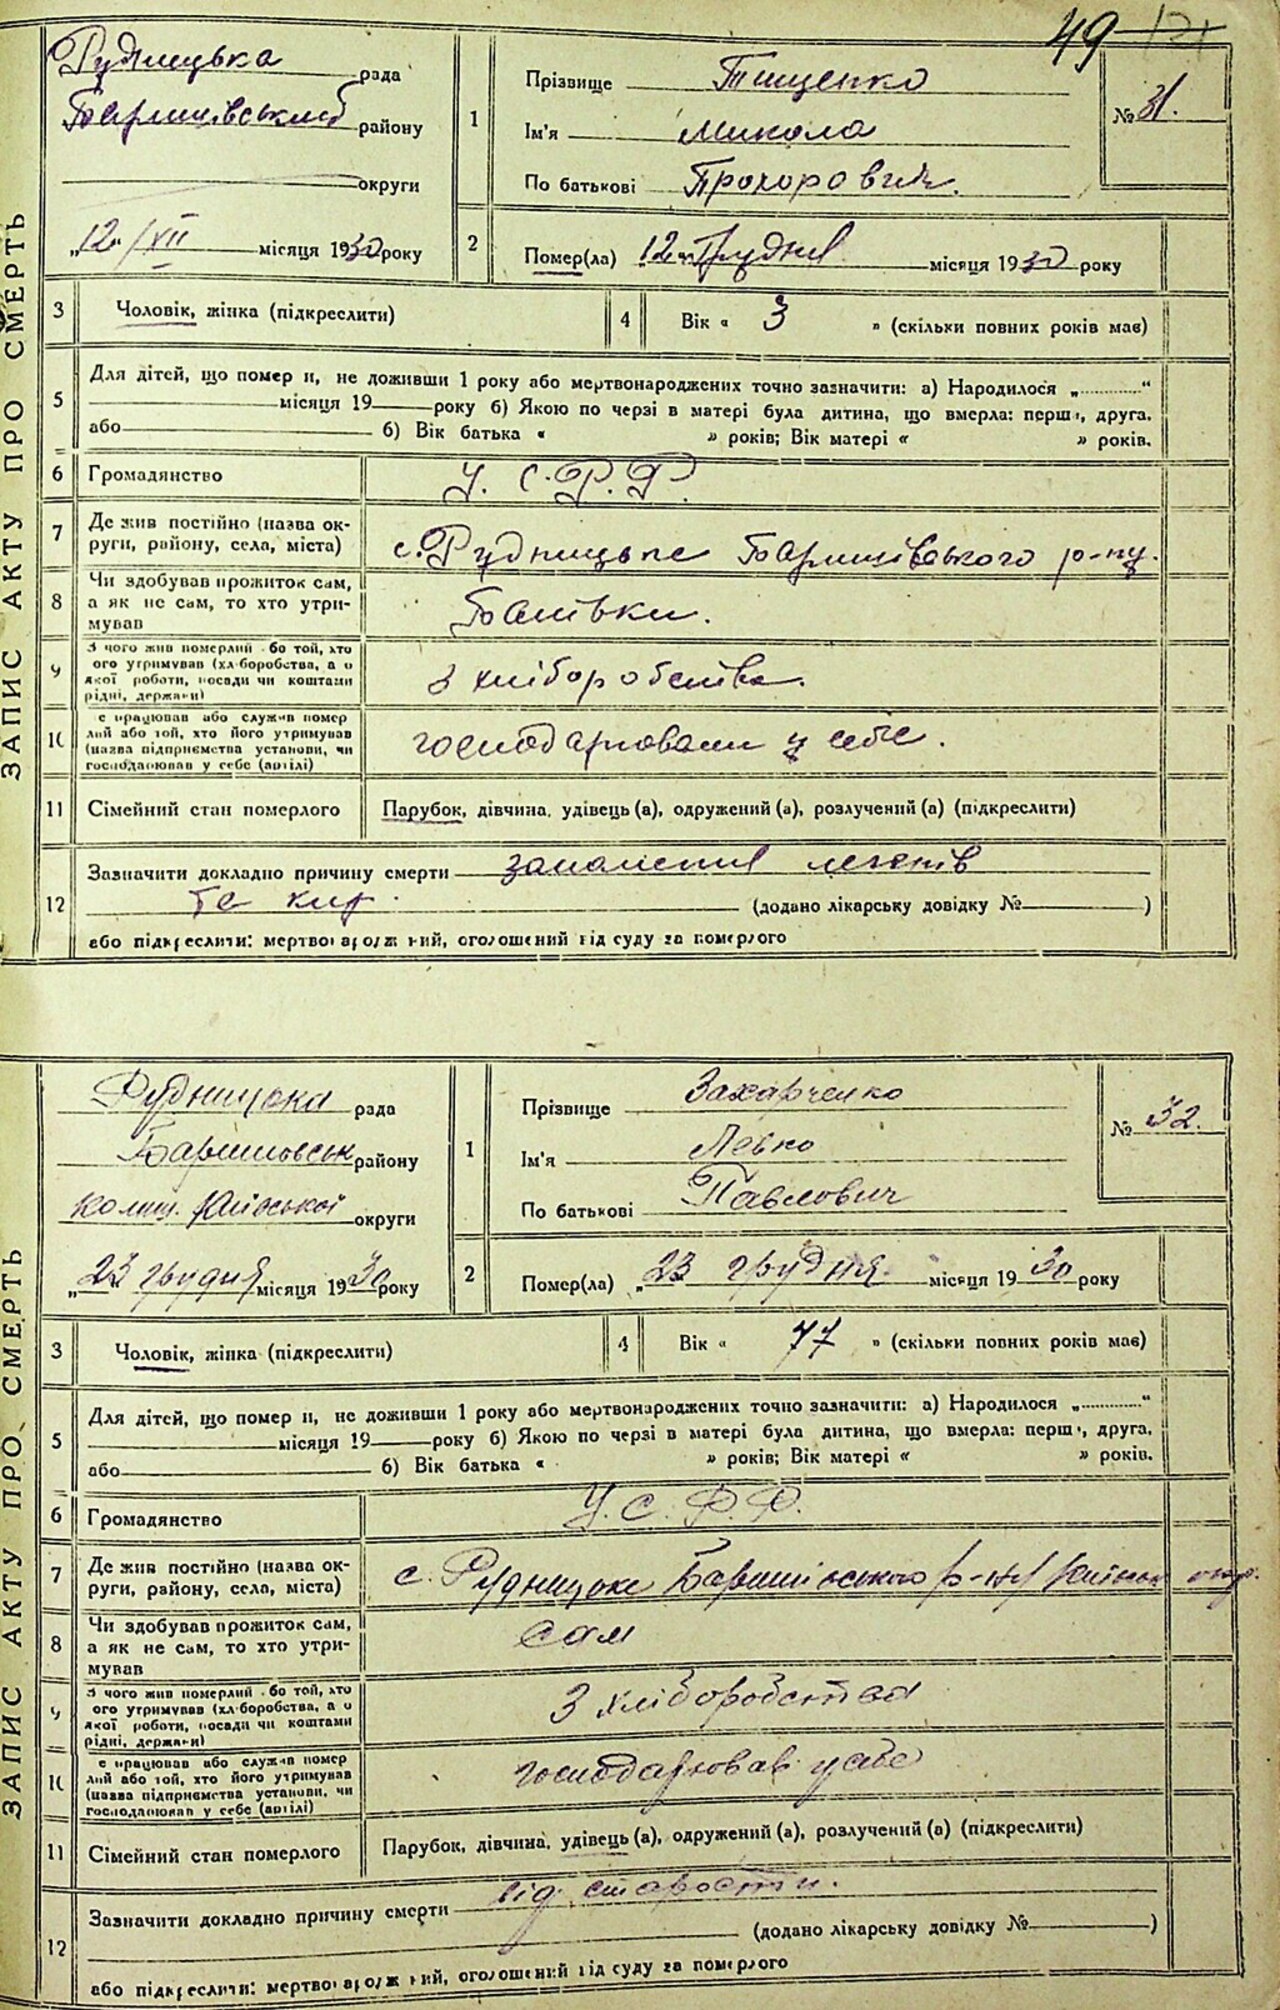 49
Рудницька рада
Баришівський району
округи
„12“ /XII місяця 1930 року
1
Прізвище Тищенко
Ім'я Микола
По батькові Прохорович.
№ 31.
2
Помер(ла) „12“ Грудня місяця 1930 року
ЗАПИС АКТУ ПРО СМЕРТЬ
3 Чоловік, жінка (підкреслити)
4 Вік « 3 » (скільки повних років має)
5 Для дітей, що помер и, не доживши 1 року або мертвонароджених точно зазначити: а) Народилося „ “
місяця 19 року б) Якою по черзі в матері була дитина, що вмерла: перша, друга.
або б) Вік батька « » років; Вік матері « » років.
6 Громадянство У. С. Р. Р.
7 Де жив постійно (назва ок-
руги, району, села, міста) с. Рудницьке Баришівського р-ну.
8 Чи здобував прожиток сам,
а як не сам, то хто утри-
мував Батьки.
9 З чого жив померлий або той, хто
його утримував (хліборобства, а о
якої роботи, посади чи коштами
рідні, держави) З хліборобства.
10 е працював або служив помер
лий або той, хто його утримував
(назва підприємства установи, чи
господарював у себе (артілі) господарювали у себе.
11 Сімейний стан померлого Парубок, дівчина, удівець (а), одружений (а), розлучений (а) (підкреслити)
12 Зазначити докладно причину смерти запалення легенів
та кир.
(додано лікарську довідку № )
або підкреслити: мертвонароджений, оголошений від суду за померлого
Рудницька рада
Баришовськ району
колиш. Київської округи
„23 грудня місяця 1930 року
1
Прізвище Захарченко
Ім'я Левко
По батькові Павлович
№ 32.
2
Помер(ла) „23 грудня місяця 1930 року
ЗАПИС АКТУ ПРО СМЕРТЬ
3 Чоловік, жінка (підкреслити)
4 Вік « 77 » (скільки повних років має)
5 Для дітей, що помер и, не доживши 1 року або мертвонароджених точно зазначити: а) Народилося „ “
місяця 19 року б) Якою по черзі в матері була дитина, що вмерла: перша, друга.
або б) Вік батька « » років; Вік матері « » років.
6 Громадянство У. С. Р. Р.
7 Де жив постійно (назва ок-
руги, району, села, міста) с. Рудницьке Баришівського р-ну Київськ окр.
8 Чи здобував прожиток сам,
а як не сам, то хто утри-
мував сам
9 З чого жив померлий або той, хто
його утримував (хліборобства, а о
якої роботи, посади чи коштами
рідні, держави) З хліборобства
10 е працював або служив помер
лий або той, хто його утримував
(назва підприємства установи, чи
господарював у себе (артілі) господарював у себе
11 Сімейний стан померлого Парубок, дівчина, удівець (а), одружений (а), розлучений (а) (підкреслити)
12 Зазначити докладно причину смерти від старости.
(додано лікарську довідку № )
або підкреслити: мертвонароджений, оголошений від суду за померлого